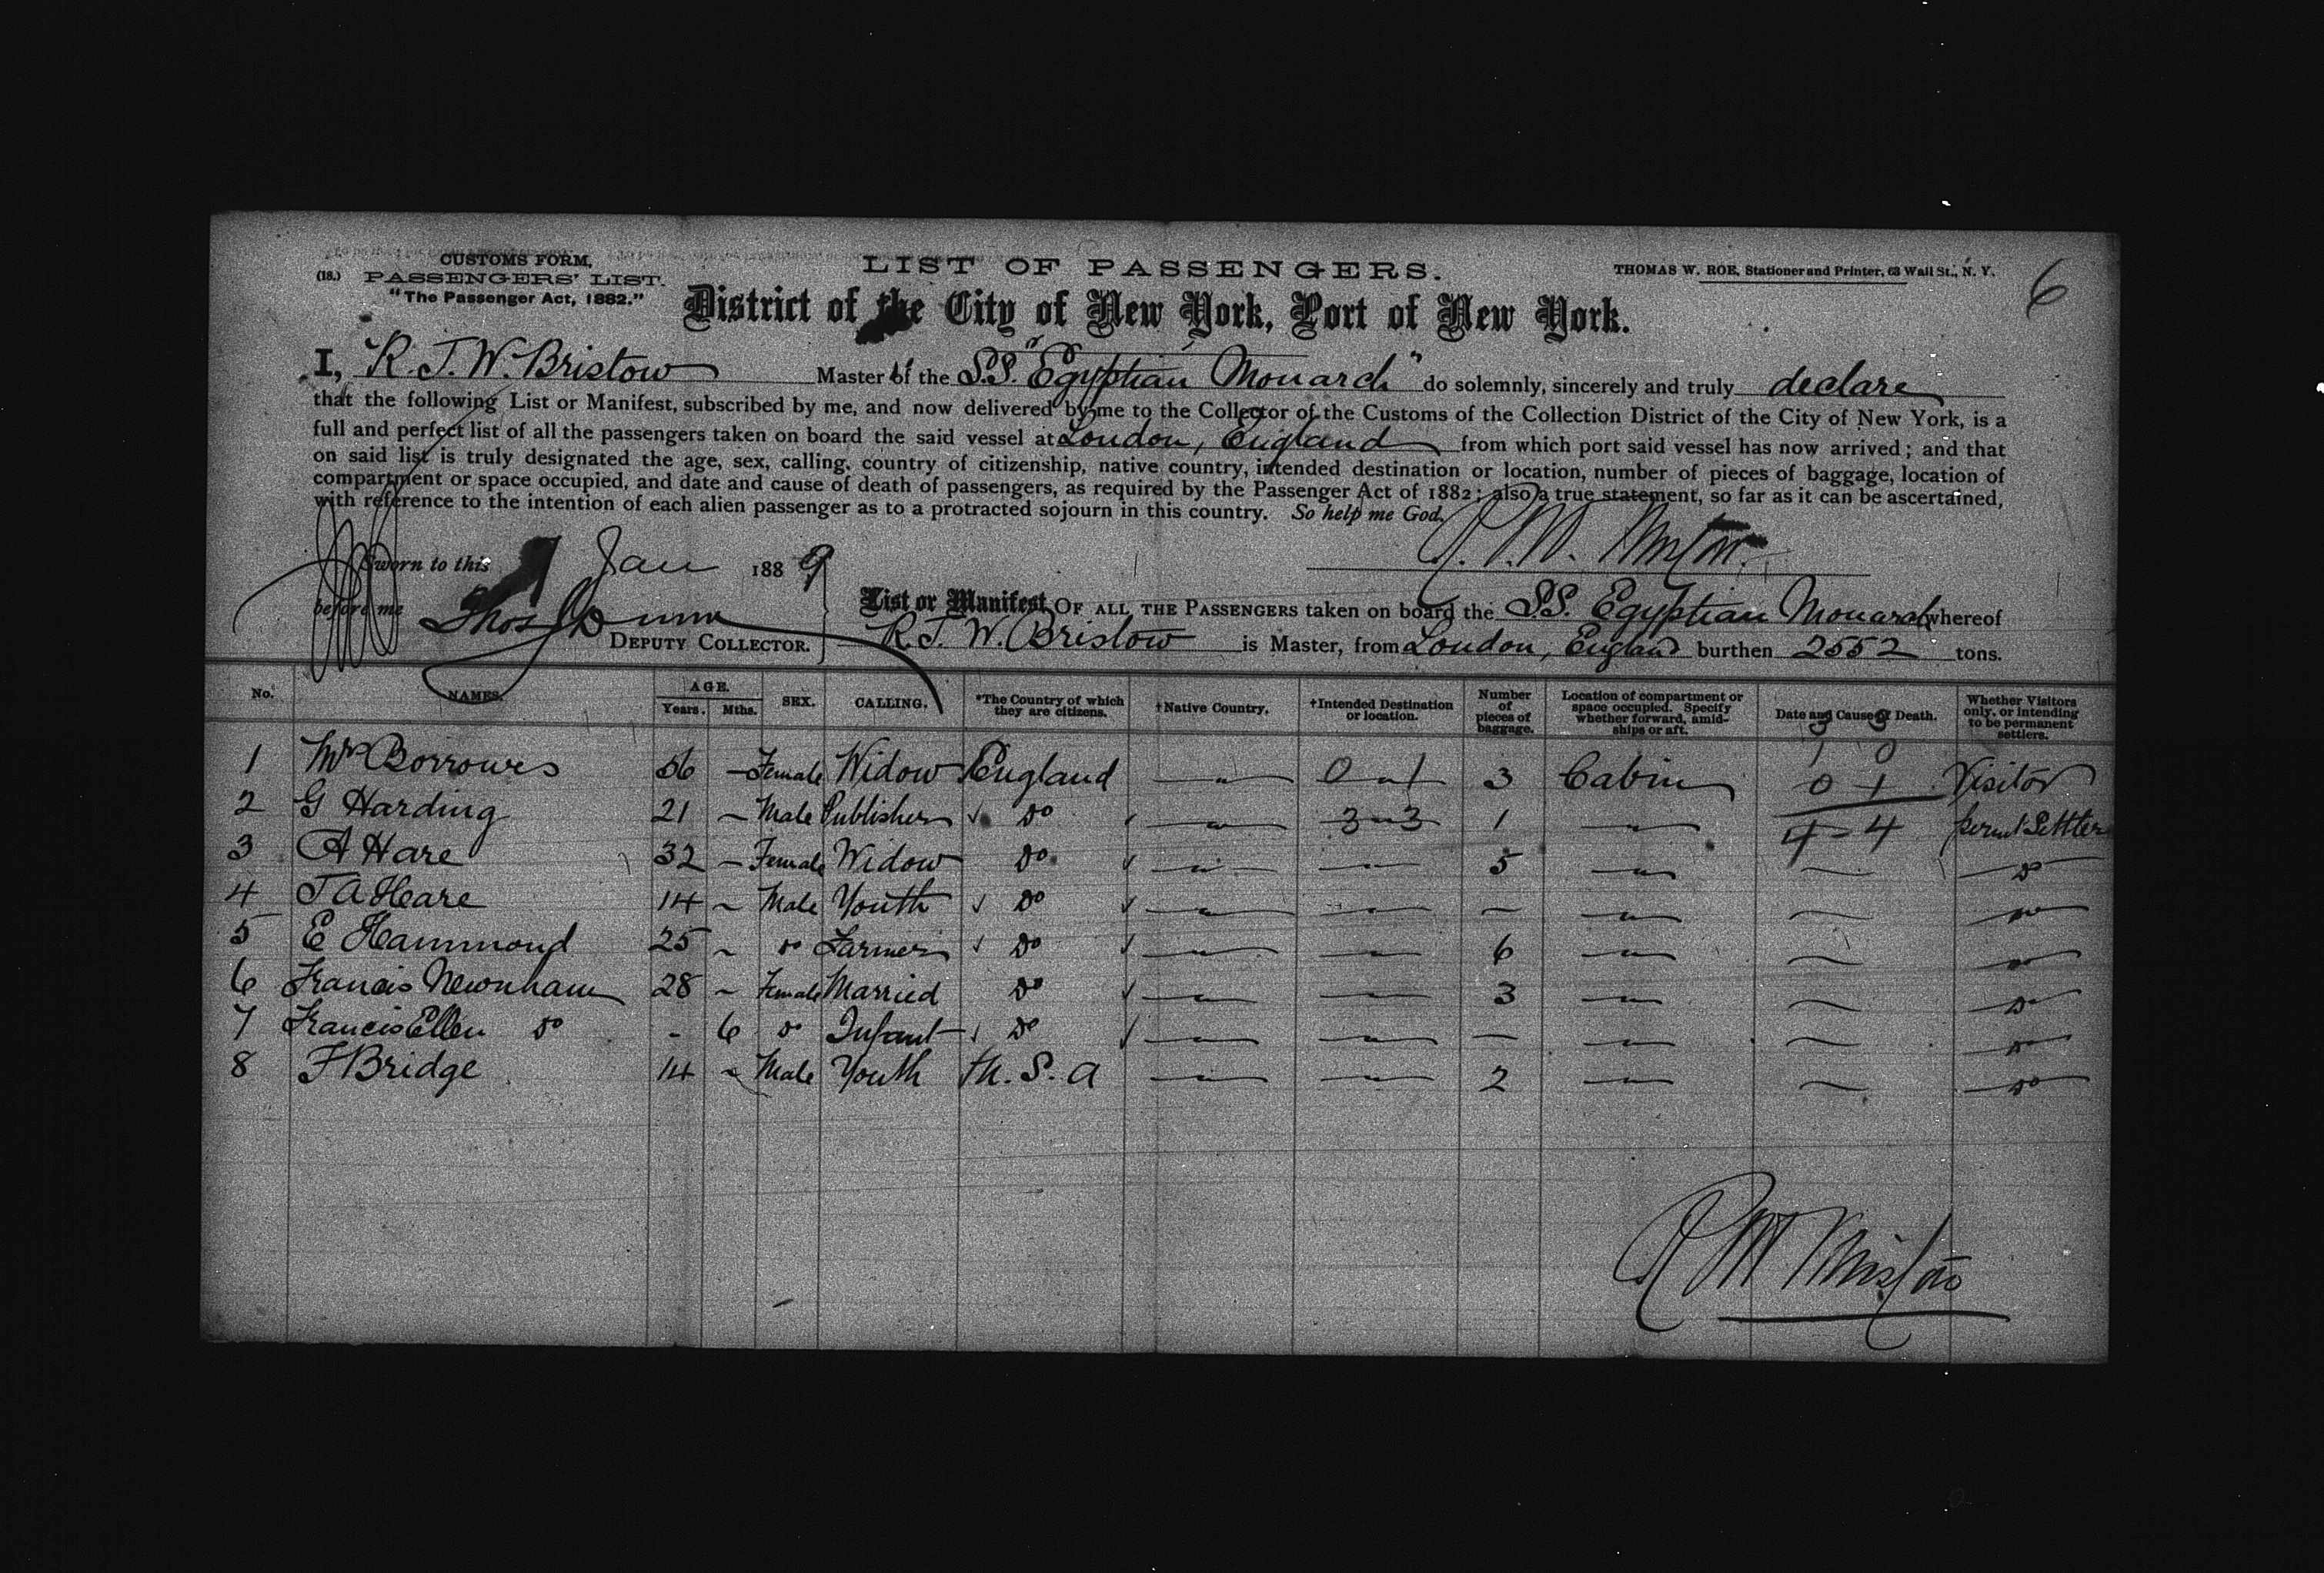 CUSTOMS FORM,
(18.) PASSENGERS' LIST.
"The Passenger Act, 1882."
LIST OF PASSENGERS.
THOMAS W. ROE, Stationer and Printer, 63 Wall St., N. Y.
6
District of the City of New York, Port of New York.
I, R. J. W. Bristow Master of the S.S. "Egyptian Monarch" do solemnly, sincerely and truly declare
that the following List or Manifest, subscribed by me, and now delivered by me to the Collector of the Customs of the Collection District of the City of New York, is a
full and perfect list of all the passengers taken on board the said vessel at London, England from which port said vessel has now arrived; and that
on said list is truly designated the age, sex, calling, country of citizenship, native country, intended destination or location, number of pieces of baggage, location of
compartment or space occupied, and date and cause of death of passengers, as required by the Passenger Act of 1882; also a true statement, so far as it can be ascertained,
with reference to the intention of each alien passenger as to a protracted sojourn in this country. So help me God.
Sworn to this Jan 1889
before me Thos Dunn
DEPUTY COLLECTOR.
List or Manifest, OF ALL THE PASSENGERS taken on board the S.S. Egyptian Monarch whereof
R. J. W. Bristow is Master, from London, England burthen 2552 tons.
No. NAMES. AGE. Years. Mths. SEX. CALLING. *The Country of which they are citizens. †Native Country. †Intended Destination or location. Number of pieces of baggage. Location of compartment or space occupied. Specify whether forward, amidships or aft. Date and Cause of Death. Whether Visitors only, or intending to be permanent settlers.
1 Mrs Borrowes 56 — Female Widow England — " — 0 - 1 3 Cabin 0 1 Visitor
2 G Harding 21 — Male Publisher do — " — 3 - 3 1 — " — 4 - 4 permt Settler
3 A Hare 32 — Female Widow do — " — — " — 5 — " — — do
4 J A Hare 14 — Male Youth do — " — — " — — — " — — do
5 E Hammond 25 — do Farmer do — " — — " — 6 — " — — do
6 Francis Newnham 28 — Female Married do — " — — " — 3 — " — — do
7 Francis Ellen do - 6 do Infant do — " — — " — — — " — — do
8 F Bridge 14 — Male Youth U. S. A — " — — " — 2 — " — — do